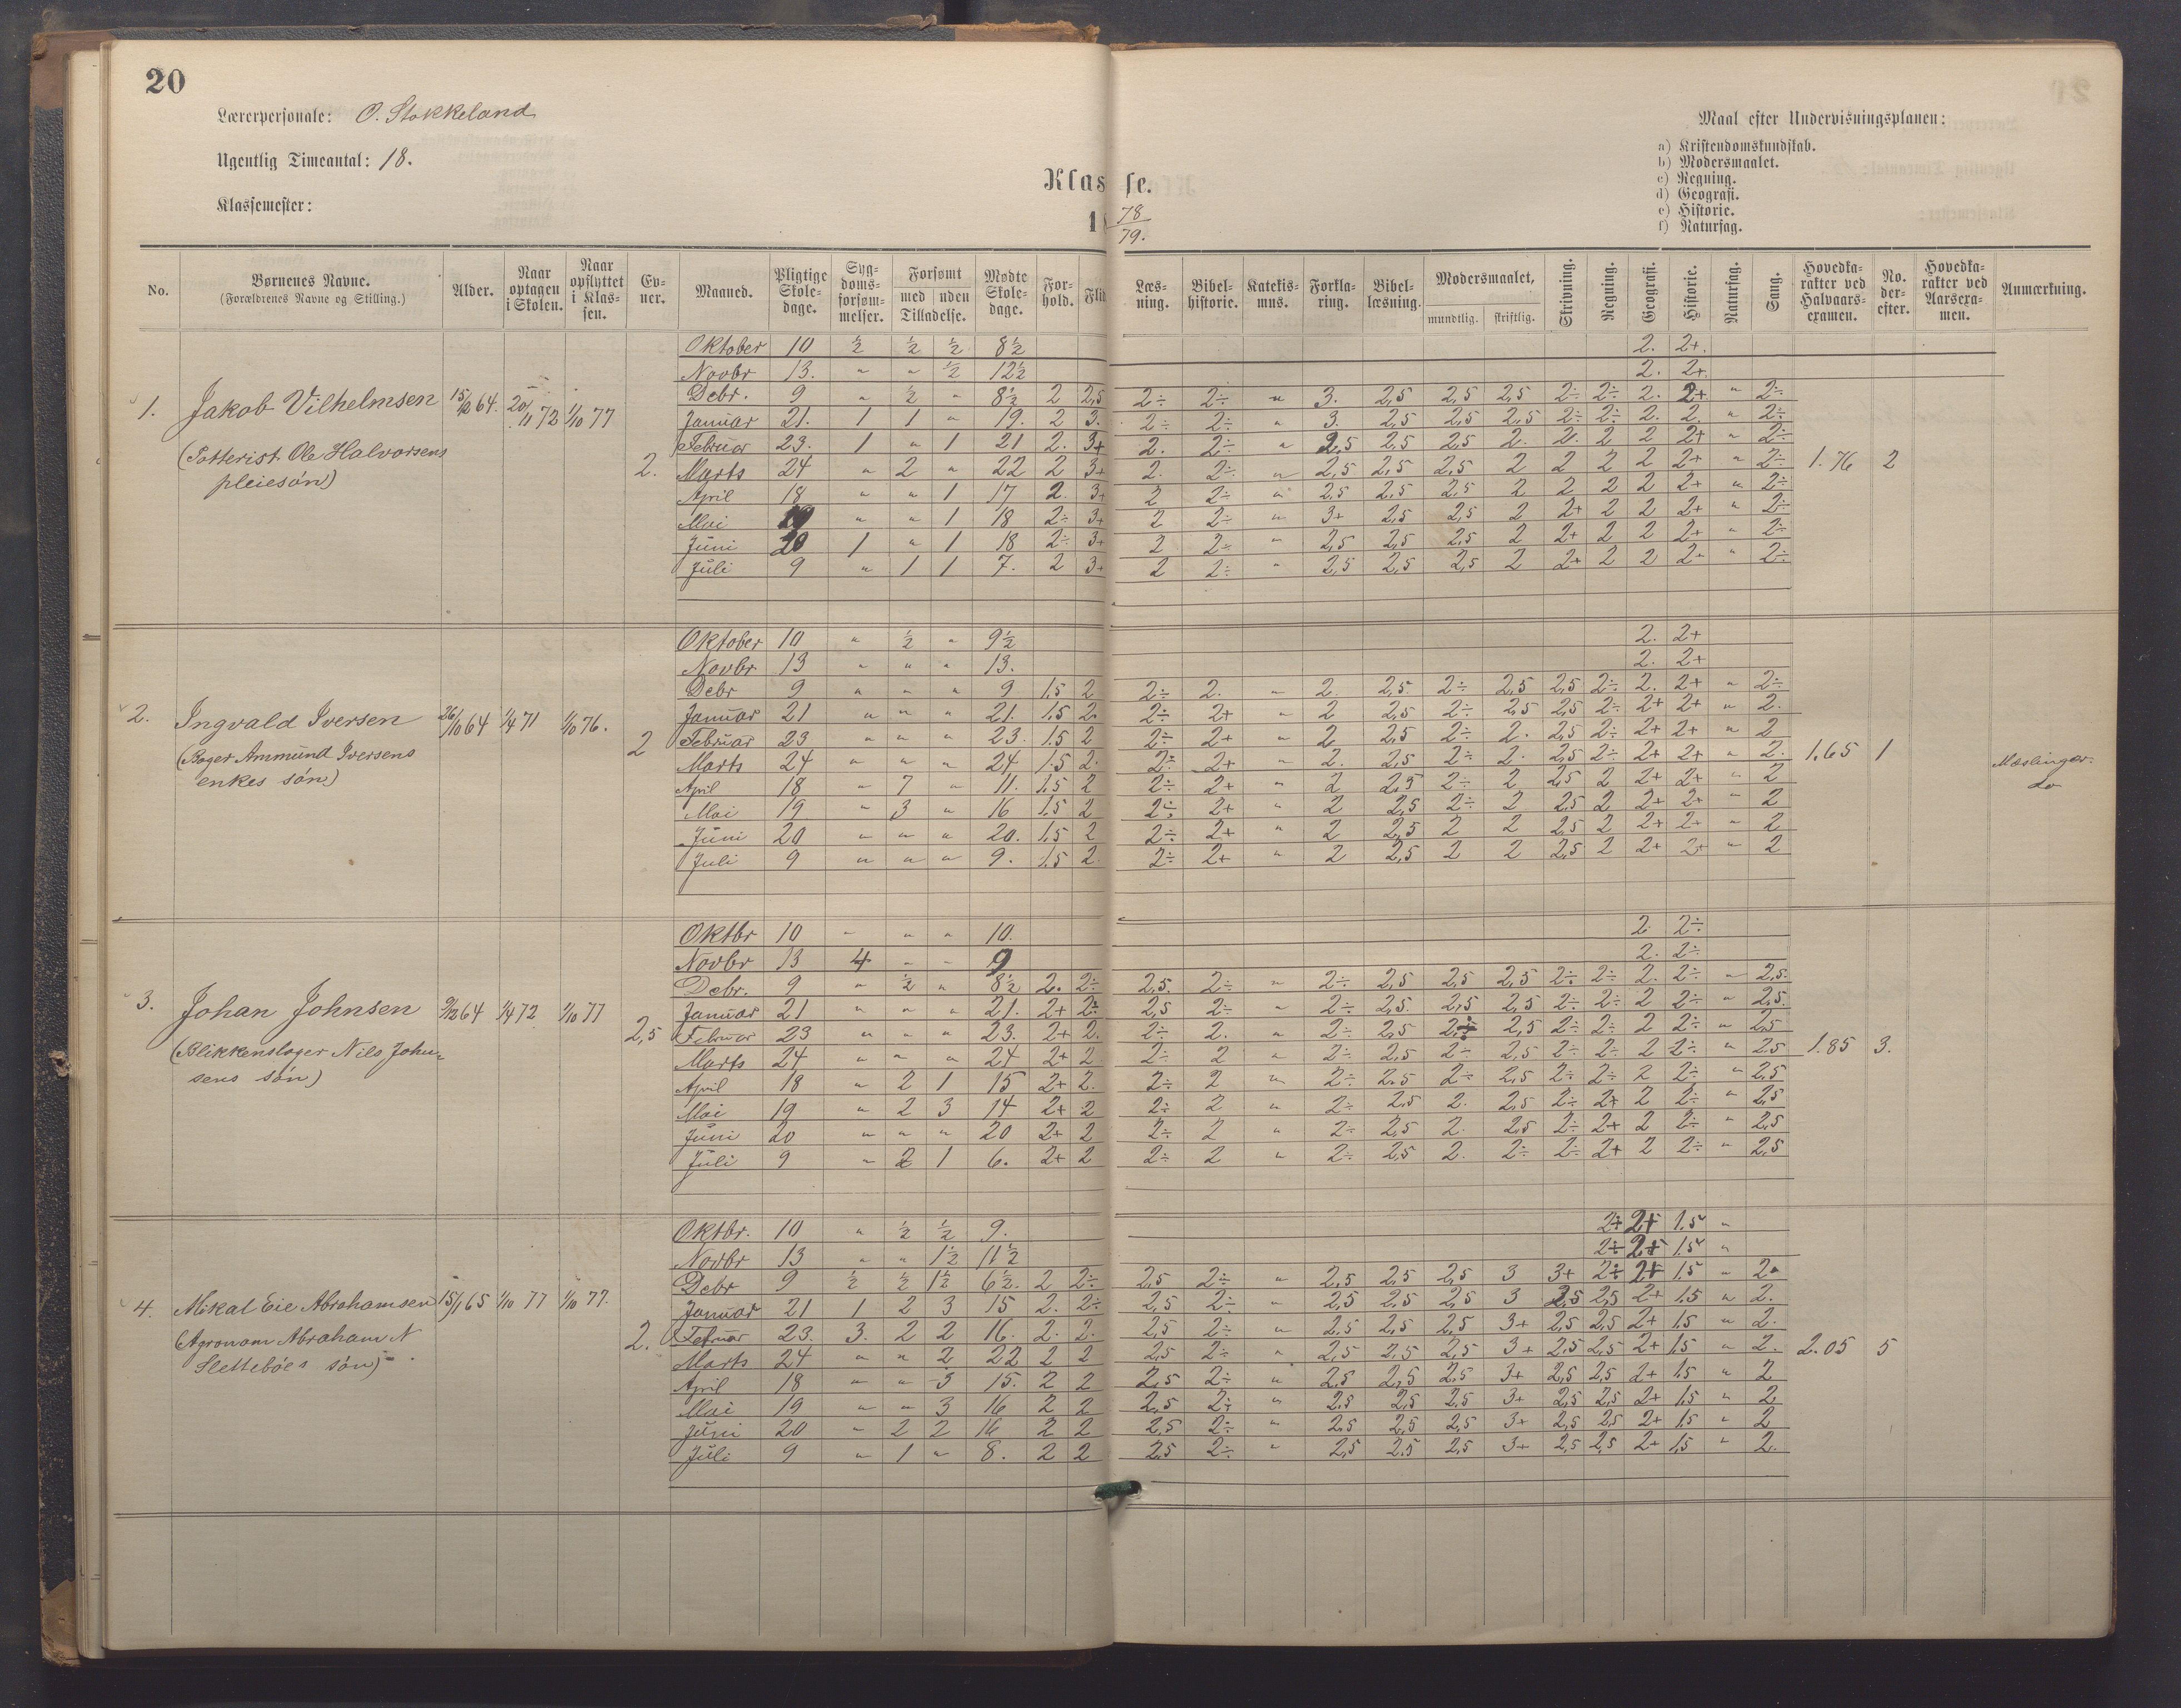 20
Lærerpersonale: O. Stokkeland
Ugentlig Timeantal: 18.
Klassemester:
Klasse.
18 78/79.
Maal efter Undervisningsplanen:
a) Kristendomskundskab.
b) Modersmaalet.
c) Regning.
d) Geografi.
e) Historie.
f) Naturfag.
No. Børnenes Navne. (Forældrenes Navne og Stilling.) Alder. Naar optagen i Skolen. Naar opflyttet i Klassen. Evner. Maaned. Pligtige Skoledage. Sygdomsforsømmelser. Forsømt med uden Tilladelse. Mødte Skoledage. Forhold. Flid Læsning. Bibelhistorie. Katekismus. Forklaring. Bibellæsning. Modersmaalet, mundtlig. skriftlig. Skrivning. Regning. Geografi. Historie. Naturfag. Sang. Hovedkarakter ved Halvaarsexamen. No. derefter. Hovedkarakter ved Aarsexamen. Anmærkning.
1. Jakob Vilhelmsen 15/12 64. 20/11 72 1/10 77
(Potterist Ole Halvorsens
pleiesön)
2. 1.76 2
Oktober 10 ½ ½ ½ 8½ 2. 2+.
Novbr 13. " " ½ 12½ 2. 2+
Debr. 9 " ½ " 8½ 2 2,5 2÷ 2÷ " 3. 2,5 2,5 2,5 2÷ 2÷ 2. 2+ " 2÷
Januar 21. 1 1 " 19. 2 3. 2÷ 2÷ " 3. 2,5 2,5 2,5 2÷ 2÷ 2. 2. " 2÷
Februar 23. 1 " 1 21 2. 3+ 2. 2÷ " 2,5 2,5 2,5 2. 2. 2 2 2+ " 2÷
Marts 24 " 2 " 22 2 3+ 2. 2÷ " 2,5 2,5 2,5 2 2 2 2 2+ " 2÷
April 18 " " 1 17 2. 3+ 2 2÷ " 2,5 2,5 2,5 2 2 2 2 2+ " 2÷
Mai 19 " " 1 18 2÷ 3+ 2 2÷ " 3+ 2,5 2,5 2 2+ 2 2 2+ " 2÷
Juni 20 1 " 1 18 2÷ 3+ 2 2÷ " 2,5 2,5 2,5 2 2+ 2 2 2+ " 2÷
Juli 9 " 1 1 7. 2 3+ 2 2÷ " 2,5 2,5 2,5 2 2+ 2 2 2+ " 2÷
2. Ingvald Iversen 26/10 64 1/4 71 1/10 76.
(Bager Ammund Iversens
enkes sön)
2 1.65 1
Mæslinger.
do
Oktober 10 " ½ " 9½ 2. 2+
Novbr 13 " " " 13. 2. 2+
Debr 9 " " " 9 1.5 2 2÷ 2. " 2. 2,5. 2÷ 2,5 2,5 2÷ 2. 2+ " 2÷
Januar 21 " " " 21. 1.5 2. 2÷ 2+ " 2 2,5 2÷ 2,5 2,5 2÷ 2+ 2+ " 2.
Februar 23 " " " 23. 1.5 2 2÷ 2+ " 2 2,5 2÷ 2. 2,5 2÷ 2+ 2+ " 2
Marts 24 " " " 24 1.5 2. 2÷ 2+ " 2. 2,5 2÷ 2. 2,5 2÷ 2+ 2+ " 2.
April 18 " 7 " 11. 1.5 2 2÷ 2+ " 2 2,5 2÷ 2 2,5 2 2+ 2+ " 2
Mai 19 " 3 " 16 1.5 2 2÷ 2+ " 2 2,5 2÷ 2 2,5 2 2+ 2+ " 2
Juni 20 " " " 20. 1.5 2 2÷ 2+ " 2 2,5 2 2 2,5 2 2+ 2+ " 2
Juli 9 " " " 9. 1.5 2. 2÷ 2+ " 2 2,5 2 2 2,5 2 2+ 2+ " 2
3. Johan Johnsen 9/12 64 1/4 72 1/10 77
(Blikkenslager Nils John-
sens sön)
2,5 1.85 3.
Oktbr 10 " " " 10. 2. 2÷
Novbr 13 4 " " 9 2. 2÷
Debr. 9 " ½ " 8½ 2. 2÷ 2,5. 2÷ " 2÷ 2,5 2,5 2,5 2÷ 2÷ 2. 2÷ " 2,5.
Januar 21 " " " 21. 2+ 2÷ 2,5 2÷ " 2÷ 2,5. 2,5 2,5 2÷ 2÷ 2 2÷ " 2,5.
Februar 23 " " " 23. 2+ 2. 2÷ 2. " 2÷ 2,5 2÷ 2,5 2÷ 2÷ 2 2÷ " 2,5
Marts 24 " " " 24 2+ 2 2÷ 2 " 2÷ 2,5 2÷ 2,5 2÷ 2÷ 2 2÷ " 2,5
April 18 " 2 1 15 2+ 2. 2÷ 2 " 2÷ 2,5 2÷ 2,5 2÷ 2÷ 2 2÷ " 2,5
Mai 19 " 2 3 14 2+ 2 2÷ 2 " 2÷ 2,5 2. 2,5 2÷ 2+ 2 2÷ " 2,5
Juni 20 " " " 20 2+ 2 2÷ 2 " 2÷ 2,5 2. 2,5 2÷ 2+ 2 2÷ " 2,5
Juli 9 " 2 1 6. 2+ 2 2÷ 2 " 2÷ 2,5 2. 2÷ 2÷ 2+ 2 2÷ " 2,5
4. Mikal Eie Abrahamsen 15/1 65 1/10 77 1/10 77.
(Agronom Abraham N
Slettebøes sön)
2. 2.05 5
Oktbr. 10 " ½ ½ 9. 2÷ 2+ 1.5 "
Novbr 13 " " 1½ 11½ 2÷ 2+ 1.5 "
Debr 9 ½ ½ 1½ 6½. 2 2÷ 2,5 2÷ " 2,5 2,5 2,5 3 3+ 2÷ 2+ 1.5 " 2.
Januar 21 1 2 3 15 2. 2÷ 2,5 2÷ " 2,5 2,5 2,5 3 2,5 2,5 2+ 1.5 " 2.
Februar 23. 3. 2 2 16. 2. 2. 2,5 2÷ " 2,5 2,5 2,5 3+ 2,5 2,5 2+ 1.5 " 2.
Marts 24 " " 2 22 2 2 2,5 2÷ " 2,5 2,5 2,5 3+ 2,5 2,5 2+ 1.5 " 2.
April 18 " " 3 15. 2 2 2,5 2÷ " 2,5 2,5 2,5 3+ 2,5 2,5 2+ 1.5 " 2
Mai 19 " " 3 16 2 2 2,5 2÷ " 2,5 2,5 2,5 3+ 2,5 2,5 2+ 1,5 " 2
Juni 20 " 2 2 16 2 2 2,5 2÷ " 2,5 2,5 2,5 3+ 2,5 2,5 2+ 1,5 " 2
Juli 9 " 1 " 8. 2 2 2,5 2÷ " 2,5 2,5 2,5 3+ 2,5 2,5 2+ 1,5 " 2.